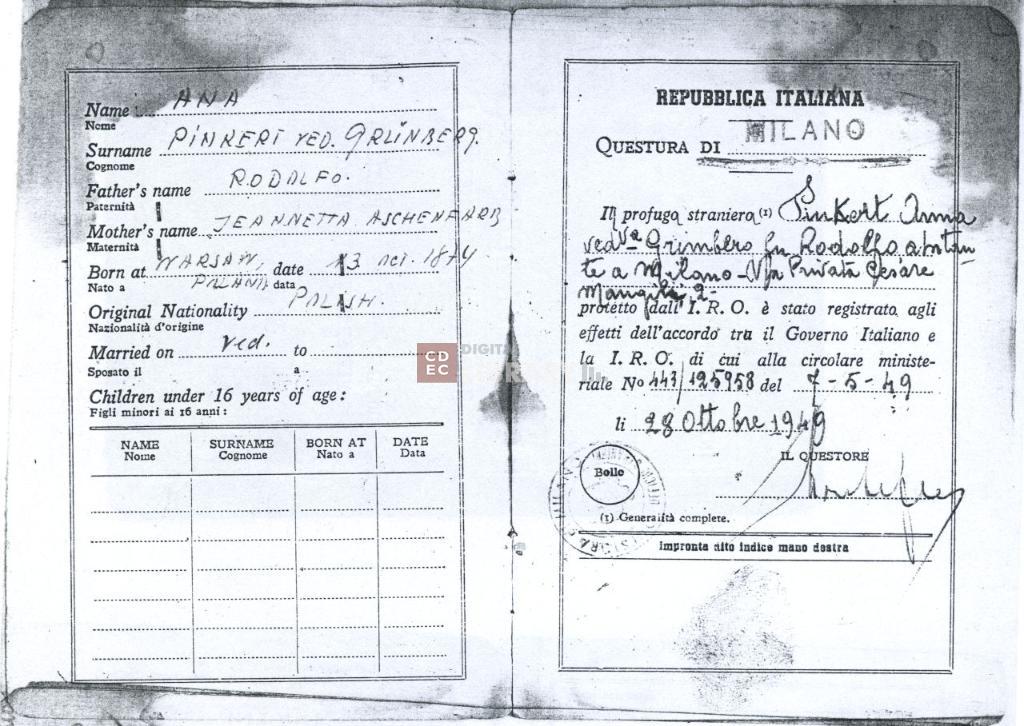 Name ANA
Nome
Surname PINKERT VED. GRÜNBERG.
Cognome
Father's name RODOLFO.
Paternità
Mother's name JEANNETTA ASCHENFARB
Maternità
Born at WARSAW, POLAND date 13 OCT. 1874
Nato a data
Original Nationality POLISH.
Nazionalità d'origine
Married on ved. to
Sposato il a
Children under 16 years of age:
Figli minori ai 16 anni:
NAME SURNAME BORN AT DATE
Nome Cognome Nato a Data
REPUBBLICA ITALIANA
QUESTURA DI MILANO
Il profugo straniero (1) Pinkert Anna
ved va Grimberg fu Rodolfo abitan
te a Milano - Via Privata Cesare
Mangili 2 -
protetto dall'I. R. O. è stato registrato, agli
effetti dell'accordo tra il Governo Italiano e
la I. R. O. di cui alla circolare ministe-
riale No 443/125958 del 7-5-49
li 28 Ottobre 1949
IL QUESTORE
Bollo
(1) Generalità complete.
Impronta dito indice mano destra
CDEC DIGITAL